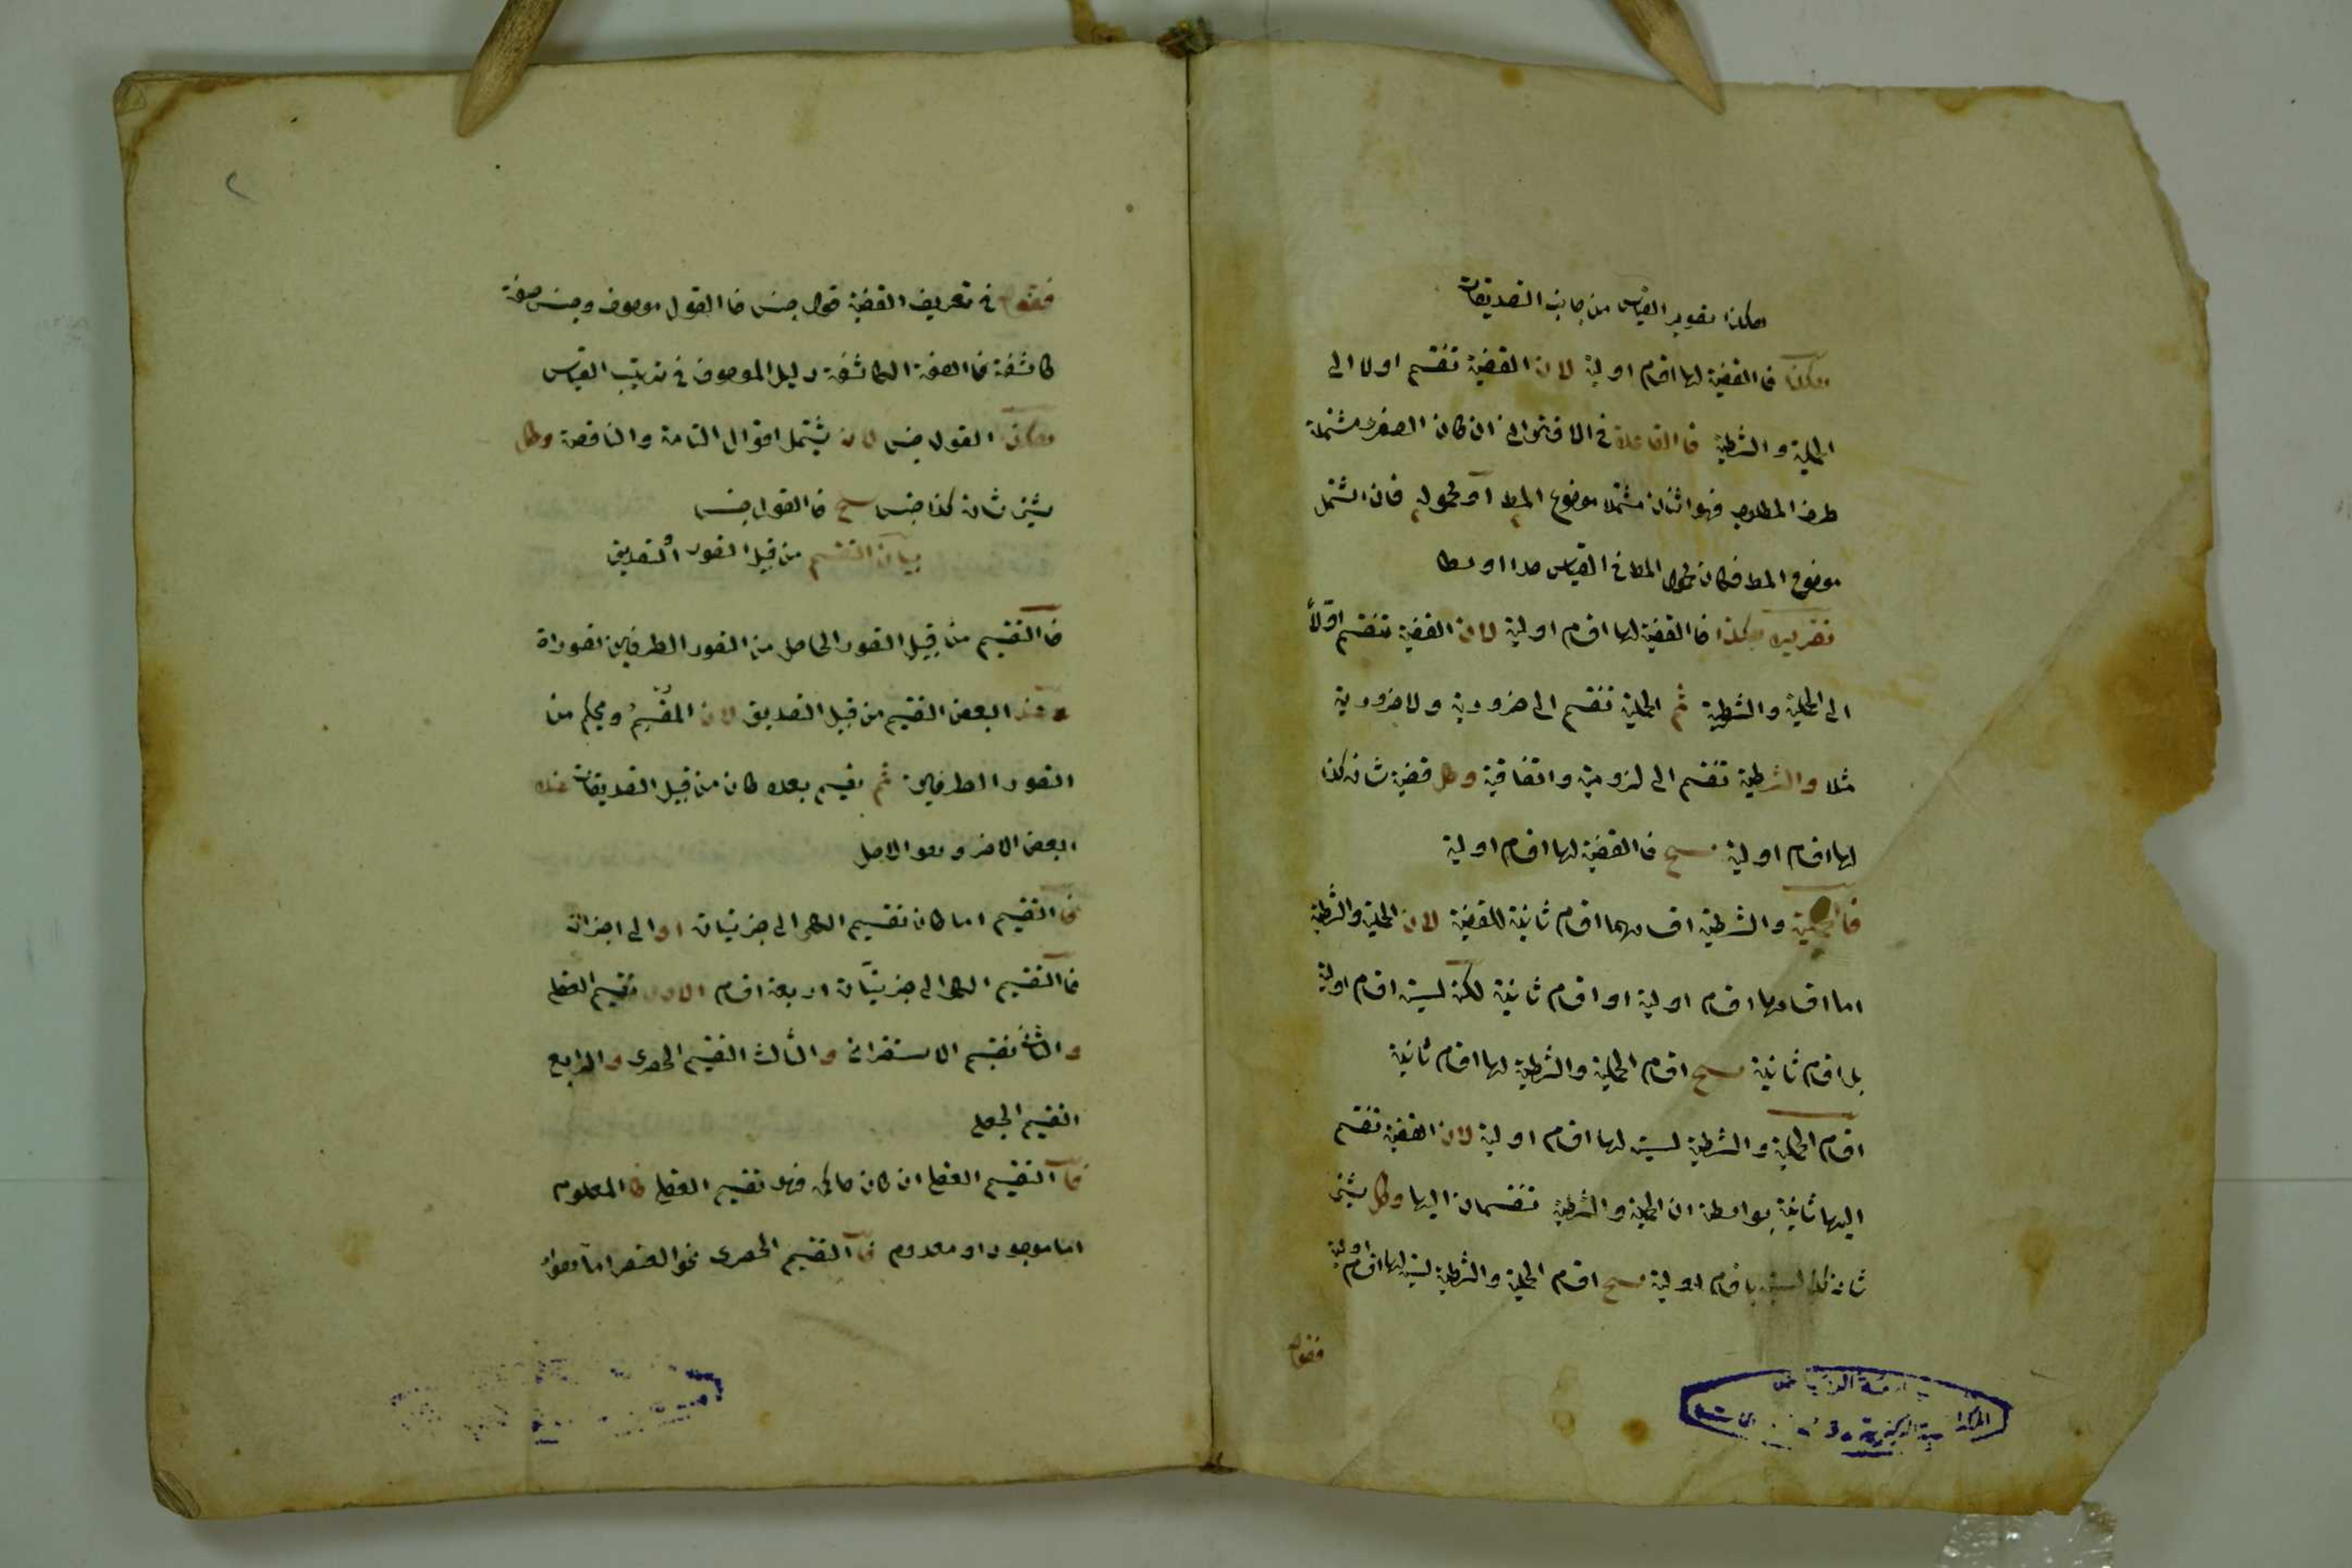 هكذا تصوير القياس من جانب التصديقات
هكذا فالقضية لها اقسام اولية لان القضية تنقسم اولا الى
الحملية والشرطية فالقاعدة في الاقتراني ان كان الصغرى مشتملة
طرف المطلوب فهو اثنان مشتملا موضوع المط او محموله فان اشتمل
موضوع المط فكان محمول المط في القياس حدا اوسطا
تقريره هكذا فالقضية لها اقسام اولية لان القضية تنقسم اوّلاً
الى الحملية والشرطية ثم الحملية تنقسم الى ضرورية ولا ضرورية
مثلا والشرطية تنقسم الى لزومية واتفاقية وكل قضية شانه كذا
لها اقسام اولية ينتج فالقضية لها اقسام اولية
فالحملية والشرطية اقسامهما اقسام ثانية للقضية لان الحملية والشرطية
اما اقسامها اقسام اولية او اقسام ثانية لكن ليست اقسام اولية
بل اقسام ثانية ينتج اقسام الحملية والشرطية لها اقسام ثانية
اقسام الحملية والشرطية ليست لها اقسام اولية لان القضية تنقسم
اليها ثانية بواسطة ان الحملية والشرطية تنقسمان اليها وكل شيئ
شانه كذا ليست باقسام اولية ينتج اقسام الحملية والشرطية ليست لها اقسام اولية
فقوله
٢
فقوله في تعريف القضية قول جنس فالقول موصوف وجنس صفة
كاشفة فالصفة الكاشفة دليل الموصوف في ترتيب القياس
هكذا القول جنس لان يشتمل اقوال التامة والناقصة وكل
شيئ شانه كذا جنس ينتج فالقول جنس
بيان التقسيم من قبيل التصور أو التصديق
فالتقسيم من قبيل التصور الحاصل من التصور الطرفين تصوراة
وعند البعض التقسيم من قبيل التصديق لان المقسِّم ويحكم من
التصور الطرفين ثم يقسم بعده كان من قبيل التصديقات عند
البعض الاخر وهو الاصل
فالتقسيم اما كان تقسيم الكلي الى جزئيات او الى اجزائه
فالتقسيم الكلي الى جزئيّات اربعة اقسام الاول تقسيم العقلي
والثاني تقسيم الاستقرائي والثالث التقسيم الحصري والرابع
التقسيم الجعلي
فالتقسيم العقلي ان كان حاكي فهو تقسيم العقلي كالمعلوم
اما موجود او معدوم فالتقسيم الحصري نحو العنصر اما هواء